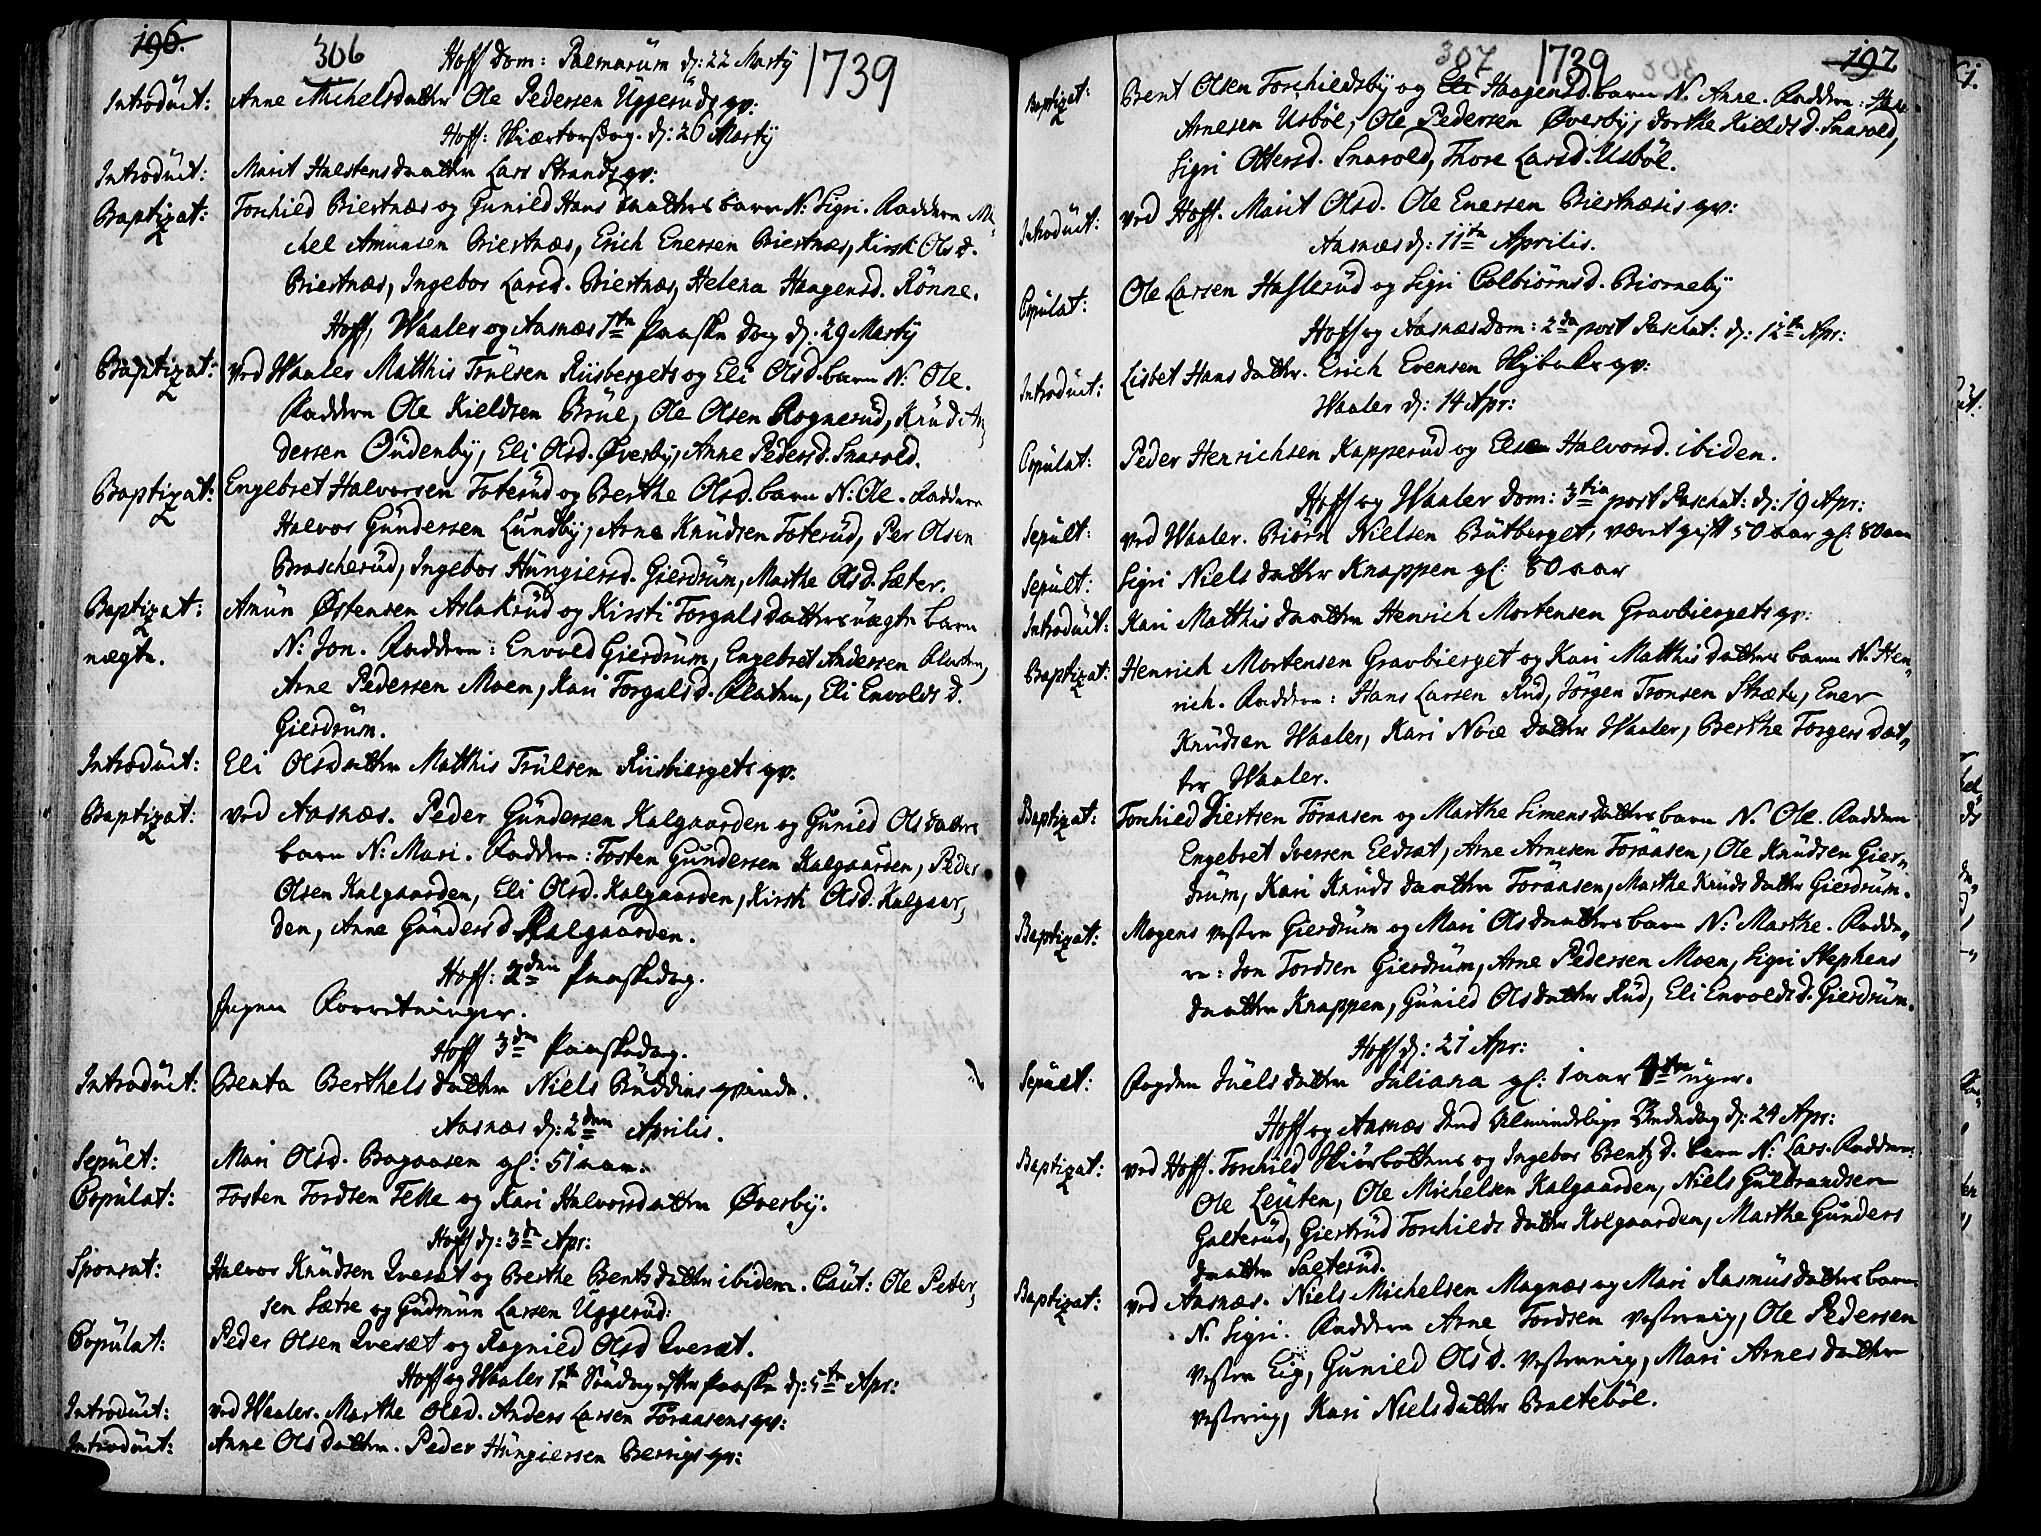 196.
306
Hoff Dom: Palmarum d: 22 Martij 1739
Introduct: Anne Michelsdatter Ole Pedersen Uggeruds qv:
Hoff: Skiærtorsdag. d: 26 Martij
Introduct: Marit Halstensdaatter Lars Strands qv:
Baptizat: Torchild Biertnæs og Gunild Hans daatters barn N: Sigri. Faddern Mi,
chel Amunsen Biertnæs, Erich Enersen Biertnæs, Kirsti Olsd.
Biertnæs, Ingebor Larsd. Biertnæs, Helena Haagensd. Rönne.
Hoff, Waaler og Aasnæs 1ste Paaske dag d: 29 Martij
Baptizat: ved Waaler Matthis Trulsen Riisbergets og Eli Olsd. barn N: Ole.
Faddern Ole Kieldsen Brüe, Ole Olsen Rognerud, Knud An,
dersen Oudenby, Eli Olsd. Øverby, Anne Pedersd. Snarold.
Baptizat: Engebret Halvorsen Toterud og Berthe Olsd. barn N: Ole. Faddern
Halvor Gundersen Lundby, Arne Knudsen Toterud, Per Olsen
Brascherud, Ingebor Hungiersd. Gierdrum, Marthe Olsd. Sæter.
Baptizat: Amun Østensen Aslakrud og Kirsti Torgalsdatters uægte barn
uægte. N: Jon. Faddern: Envold Gierdrum, Engebret Andersen Flaten,
Arne Pedersen Moen, Kari Torgalsd. Flaten, Eli Envolds d.
Gierdrum.
Introduct: Eli Olsdatter Matthis Trulsen Riisbiergets qv.
Baptizat: ved Aasnæs. Peder Gundersen Kalgaarden og Gunild Olsdatters
barn N: Mari. Faddern: Tosten Gundersen Kalgaarden, Peder
Olsen Kalgaarden, Eli Olsd. Kalgaarden, Kirsti Olsd. Kalgaar,
den, Anne Gundersd. Kalgaarden.
Hoff: 2den Paaskedag.
Ingen Forretninger.
Hoff 3die Paaskedag.
Introduct: Benta Berthelsdatter Niels Buddins qvinde.
Aasnæs d: 2den Aprilis.
Sepult: Mari Olsd. Bagaasen gl: 51 aar.
Copulat: Tosten Tordsen Telle og Kari Halvorsdatter Øverby.
Hoff d: 3die Apr:
Sponsat: Halvor Knudsen Qveset og Berthe Bentsdatter ibidem. Caut: Ole Peder,
sen Sætre og Gudmun Larsen Uggerud:
Copulat: Peder Olsen Qveset og Ragnild Olsd Qveset.
Hoff og Waaler 1te Søndag efter Paaske d: 5te Apr:
Introduct: ved Waaler. Marthe Olsd. Anders Larsen Toraasens qv:
Introduct: Anne Olsdatter. Peder Hungiersen Berrigs qv:
307 1739 197
Baptizat: Brent Olsen Torchieldsby og Eli Haagensd. barn N. Anne. Faddern:
Arnesen Usböl, Ole Pedersen Øverby, Dorthe Kieldsd. Snarold,
Sigri Ottersd. Snarold, Thore Larsd. Usböl.
Introduct: ved Hoff. Marit Olsd. Ole Enersen Biertnæsis qv:
Aasnæs d: 11te Aprilis.
Copulat: Ole Larsen Haslerud og Sigri Colbiörnsd. Biorneby
Hoff og Aasnæs Dom: 2da post Paschat: d: 12te Apr:
Introduct: Lisbet Hansdattr. Erich Evensen Skybaks qv:
Waaler d: 14 Apr:
Copulat: Peder Henrichsen Kapperud og Else Halvorsd. ibiden.
Hoff og Waaler Dom: 3tia post Paschat: d: 19 Apr:
Sepult: ved Waaler. Biörn Nielsen Butberget, været gift 50 aar gl: 80 aar
Sepult: Sigri Nielsdatter Knappen gl: 80 aar
Introduct: Kari Matthisdaatter Henrich Mortensen Gravbiergets qv:
Baptizat: Henrich Mortensen Gravbierget og Kari Matthisdatters barn N: Hen,
rich. Faddern: Hans Larsen Rud, Jörgen Tronsen Stræte, Ener
Knudsen Waaler, Kari Noie datter Waaler, Berthe Torgersdat,
ter Waaler.
Baptizat: Torchield Siertsen Toraasen og Marthe Simensdatters barn N. Ole. Faddern
Engebret Iversen Eldset, Arne Arnesen Toraasen, Ole Knudsen Gier,
drum, Kari Knudsdaatter Toraasen, Marthe Knudsdatter Gierdrum.
Baptizat: Mogens vestre Gierdrum og Mari Olsdaatters barn N: Marthe. Fadde,
rn: Jon Tordsen Gierdrum, Arne Pedersen Moen, Sigri Stephens
daatter Knappen, Gunild Olsdatter Rud, Eli Envoldsd. Gierdrum.
Hoff d: 21 Apr:
Sepult: Fogden Juelsdatter Juliana gl: 1 aar 4re uger.
Hoff og Aasnæs den Almindelige Bededag d: 24 Apr:
Baptizat: ved Hoff. Torchild Skiörbottens og Ingebor Bentzd. barn N: Lars. Faddern:
Ole Leuten, Ole Michelsen Kalgaarden, Niels Gulbrandsen
Galterud, Giertrud Torchilds datter Kalgaarden, Marthe Gunders
daatter Salterud.
Baptizat: ved Aasnæs. Niels Michelsen Magnæs og Mari Rasmusdatters barn
N. Sigri. Faddern Arne Tordsen Vestereig, Ole Pedersen
vestre Eig, Gunild Olsd. Vestereig, Mari Arnesdatter
Vestereig, Kari Nielsdatter Bralteböl.